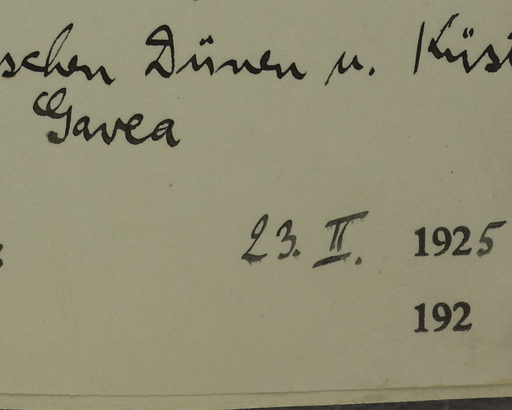 schen Dünen u. Küst
Gavea
23. II. 1925
192